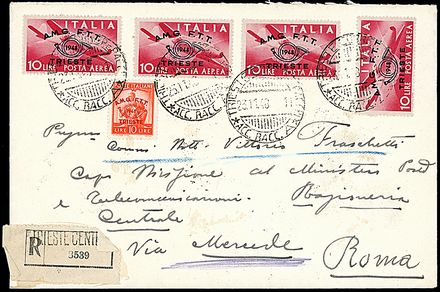 ITALIA
A.M.G. F.T.T.
1948
TRIESTE
10 LIRE POSTA AEREA
ITALIA
A.M.G. F.T.T.
1948
TRIESTE
10 LIRE POSTA AEREA
ITALIA
A.M.G. F.T.T.
1948
TRIESTE
10 LIRE POSTA AEREA
ITALIA
A.M.G. F.T.T.
1948
TRIESTE
10 LIRE POSTA AEREA
TRIESTE
ACC. RACC.
A.M.G. F.T.T.
TRIESTE
LIRE 10 LIRE
Comm. Dott. Vittorio Fraschetti
Capo Missione al Ministero Post
e Telecomunicazioni Ragioneria
Centrale
Via Mercede
Roma
R
TRIESTE CENT
3539